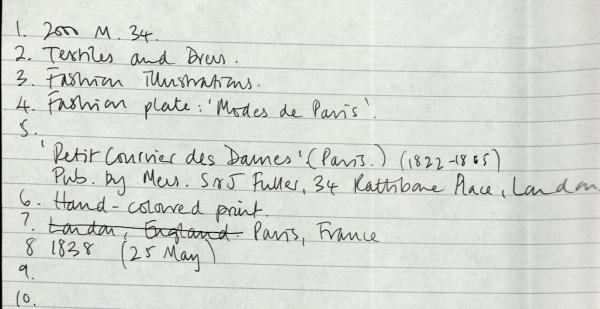 1. 2000 M. 34.
2. Textiles and Dress.
3. Fashion Illustrations.
4. Fashion plate: 'Modes de Paris'.
5.
'Petit Courrier des Dames' (Paris.) (1822-1865)
Pub. by Mess. S & J Fuller, 34 Rathbone Place, London
6. Hand-coloured print.
7. London, England. Paris, France
8 1838 (25 May)
9.
10.